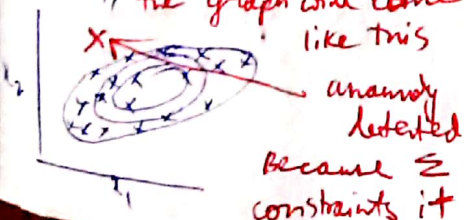 the graph will come
like this
X
anamoly
detected
Because Σ
constraints it
x₂
x₁